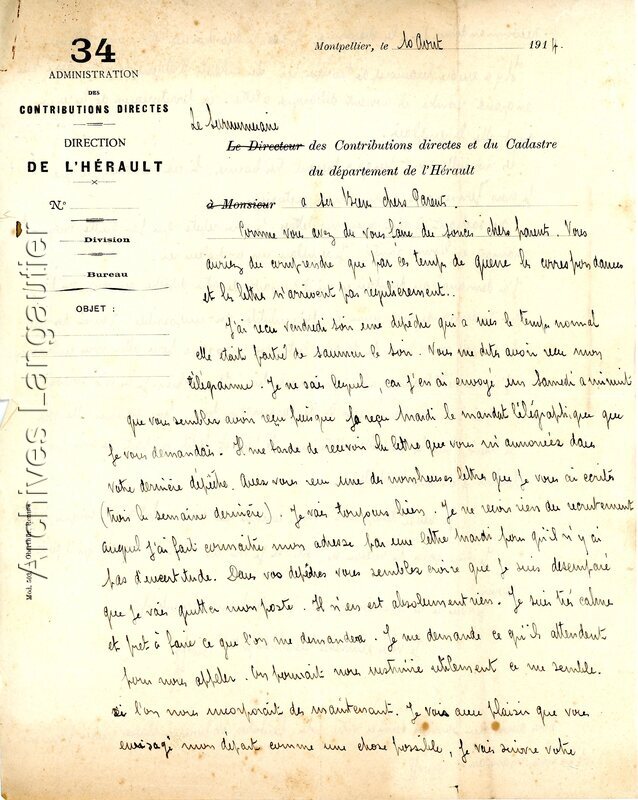 34
ADMINISTRATION
DES
CONTRIBUTIONS DIRECTES
DIRECTION
DE L'HÉRAULT
N°
Division
Bureau
OBJET :
Archives Langautier
Montpellier, le 10 Aout 1914.
Le Surnumeraire
Le Directeur des Contributions directes et du Cadastre
du département de l'Hérault
à Monsieur a ses Biens chers Parents.
Comme vous avez du vous faire du soucis chers parents. Vous
auriez du comprendre que par ces temps de guerre les correspondances
et les lettres n'arrivent pas régulierement..
J'ai recu vendredi soir une depêche qui a mis le temps normal
elle était partie de Saumur le soir. Vous me dites avoir recu mon
télégramme. Je ne sais lequel, car j'en ai envoyé un Samedi a minuit
que vous semblez avoir reçu puisque j'a reçu Mardi le mandat télégraphique que
je vous demandais. Il me tarde de recevoir la lettre que vous m'annoncez dans
votre dernière dépêche. Avez vous recu une des nombreuses lettres que je vous ai écrites
(trois la semaine dernière). Je vais toujours bien. Je ne recois rien du recrutement
auquel j'ai fait connaitre mon adresse par une lettre mardi pour qu'il n'y ai
pas d'incertitude. Dans vos dépêches vous semblez croire que je suis desemparé
que je vais quitter mon poste. Il n'en est absolument rien. Je suis très calme
et pret à faire ce que l'on me demandera. Je me demande ce qu'ils attendent
pour nous appeler. On pourrait nous instruire utilement ce me semble.
si l'on nous incorporait des maintenant. Je vois avec plaisir que vous
envisagé mon départ comme une chose possible, je vais suivre votre